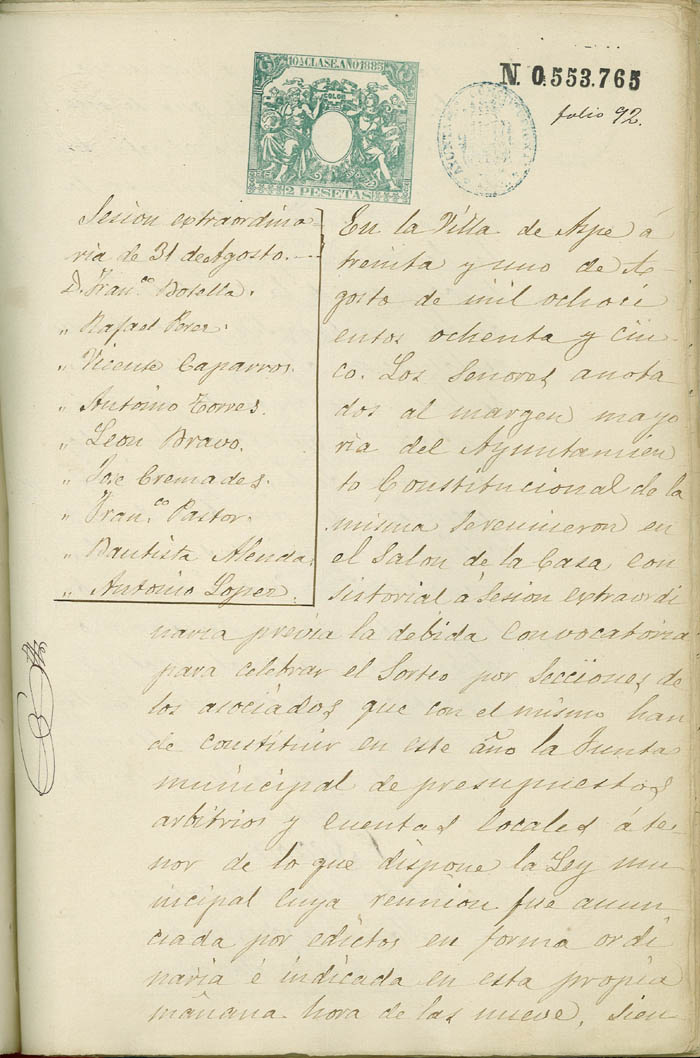 10ª CLASE AÑO 1885
2 PESETAS
N. 0.553.765
folio 92.
Sesion extraordina-
ria de 31 de Agosto.
D. Fran.co Botella.
" Rafael Perez.
" Vicente Caparros.
" Antonio Torres.
" Leon Bravo.
" Jose Cremades.
" Fran.co Pastor.
" Bautista Alenda.
" Antonio Lopez.
En la Villa de Aspe á
treinta y uno de A-
gosto de mil ochoci
entos ochenta y cin-
co. Los Señores anota-
dos al margen mayo
ria del Ayuntamien
to Constitucional de la
misma se reunieron en
el Salon de la Casa Con
sistorial á Sesion extraordi
naria previa la debida Convocatoria
para celebrar el Sorteo por Secciones de
los asociados que con el mismo han
de constituir en este año la Junta
municipal de presupuestos
arbitrios y cuentas locales á te-
nor de lo que dispone la Ley mu
nicipal cuya reunion fue anun
ciada por edictos en forma ordi
naria é indicada en esta propia
mañana hora de las nueve, Sien